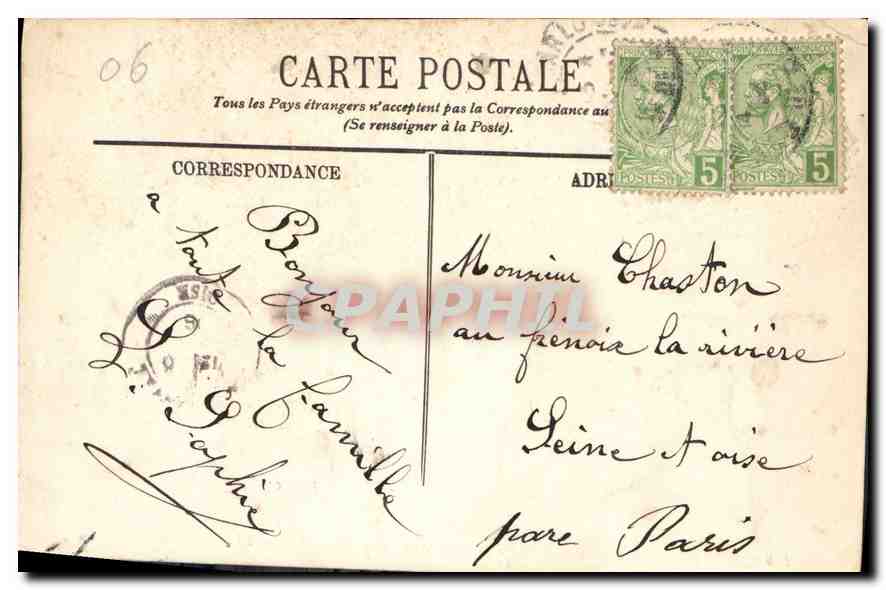 06
CARTE POSTALE
Tous les Pays étrangers n'acceptent pas la Correspondance au
(Se renseigner à la Poste).
PRINCIPAUTÉ DE MONACO
POSTES 5
PRINCIPAUTÉ DE MONACO
POSTES 5
CORRESPONDANCE
Bonjour
a toute la famille
L. Sophie
CPAPHIL
ADR
Monsieur Chaston
au frénoix la rivière
Seine et oise
pare Paris